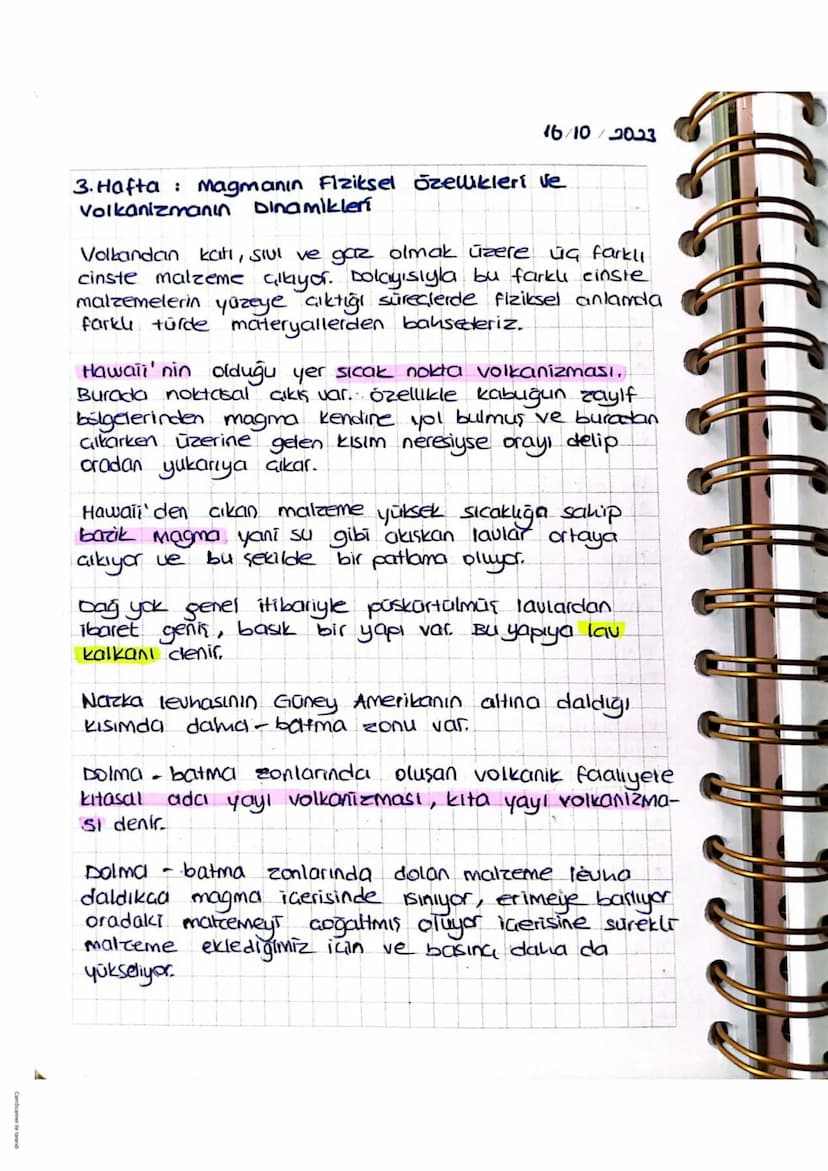 16/10/2023
3.Hafta : Magmanın Fiziksel Özellikleri ve
Volkanizmanın Dinamikleri
Volkandan katı, sıvı ve gaz olmak üzere üç farklı
cinste malzeme çıkıyor. Dolayısıyla bu farklı cinste
malzemelerin yüzeye çıktığı süreçlerde fiziksel anlamda
farklı türde materyallerden bahsederiz.
Hawaii'nin olduğu yer sıcak nokta volkanizması.
Burada noktasal çıkış var. Özellikle kabuğun zayıf
bölgelerinden magma kendine yol bulmuş ve buradan
çıkarken üzerine gelen kısım neresiyse orayı delip
oradan yukarıya çıkar.
Hawaii'den çıkan malzeme yüksek sıcaklığa sahip
bazik magma yani su gibi akışkan lavlar ortaya
çıkıyor ve bu şekilde bir patlama oluyor.
Dağ yok genel itibariyle püskürtülmüş lavlardan
ibaret geniş, basık bir yapı var. Bu yapıya lav
kalkanı denir.
Nazka levhasının Güney Amerikanın altına daldığı
kısımda dalma-batma zonu var.
Dalma-batma zonlarında oluşan volkanik faaliyete
kıtasal ada yayı volkanizması, kıta yayı volkanizma-
sı denir.
Dalma-batma zonlarında dalan malzeme levha
daldıkça magma içerisinde ısınıyor, erimeye başlıyor
oradaki malzemeyi çoğaltmış oluyor içerisine sürekli
malzeme eklediğimiz için ve basıncı daha da
yükseliyor.
CamScanner ile tarandı